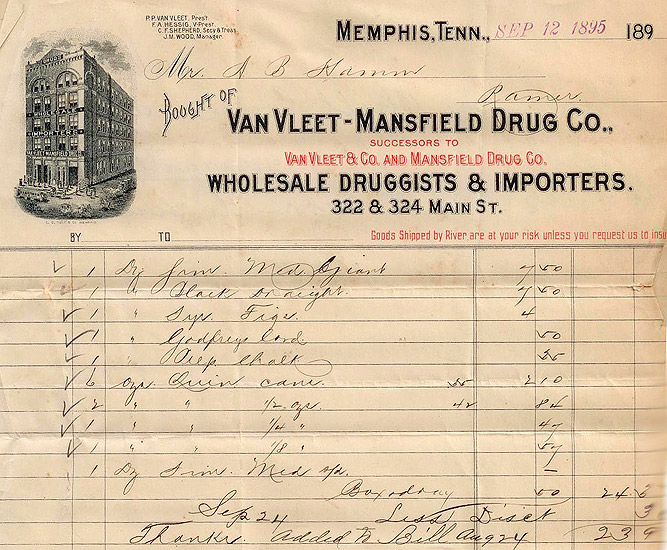 P.P. VAN VLEET, Prest
F.A. HESSIG, V-Prest.
C.F. SHEPHERD, Secy & Treas.
J.M. WOOD, Manager.
MEMPHIS, TENN., SEP 12 1895 189
Mr. A B Hamm
Ramer
BOUGHT OF
VAN VLEET-MANSFIELD DRUG CO.,
SUCCESSORS TO
VAN VLEET & CO. AND MANSFIELD DRUG CO.
WHOLESALE DRUGGISTS & IMPORTERS.
322 & 324 MAIN ST.
BY TO Goods Shipped by River are at your risk unless you request us to insu
1 Dz Sim. Med Giant 7 50
1 " Black Draught. 7 50
1 " Syr. Figs. 4
1 " Godfreys Cord. 50
1 " Prep Chalk 35
6 ozs. Quin cans. 35 2 10
2 " " 1/2 ozs. 42 84
1 " " 1/4 " 47
1 " " 1/8 " 57
1 Dz Sim. Med 1
Box & dray 50 24
Sep 24 Less Disct 3
Thanks. Added to Bill Aug 24 23 9